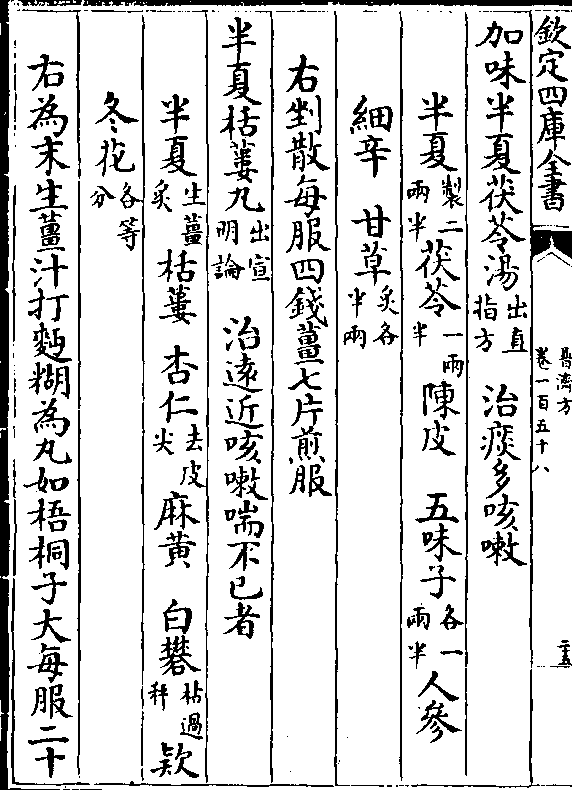 欽定四庫全書
普濟方
卷一百五十八
二五
加味半夏茯苓湯出直指方 治痰多咳嗽
半夏製二兩半茯苓一兩半陳皮 五味子各一兩半人參
細辛 甘草炙各半兩
右剉散每服四錢薑七片煎服
半夏栝蔞丸出宣明論 治遠近咳嗽喘不已者
半夏生薑炙栝蔞 杏仁去皮尖麻黄 白礬枯過秤欵
冬花各等分
右為末生薑汁打麪糊為丸如梧桐子大每服二十